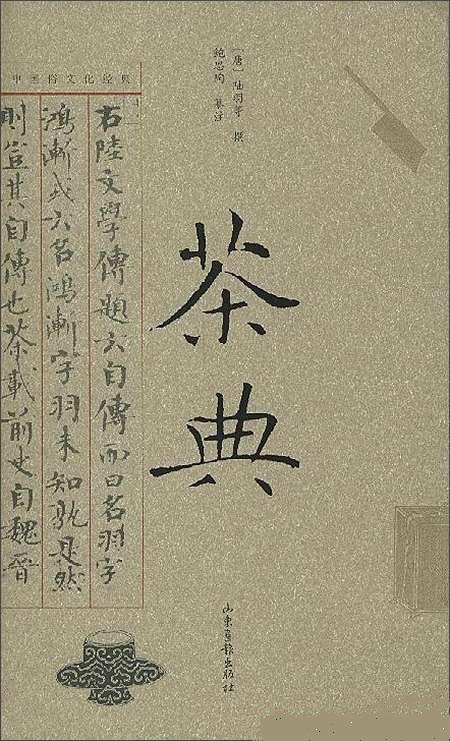 中国俗文化经典
[唐]陆羽等 撰
鲍思陶 纂注
茶典
右陸文學傳題云自傳而曰名羽字
鴻漸或云名鴻漸字羽未知孰是然
則豈其自傳也茶載前史自魏晉
山东画报出版社